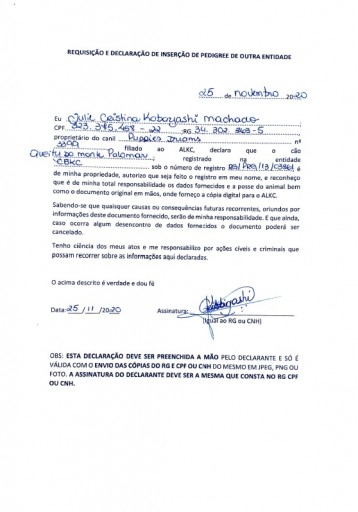 REQUISIÇÃO E DECLARAÇÃO DE INSERÇÃO DE PEDIGREE DE OUTRA ENTIDADE
25 de novembro 2020
Eu Julie Cristina Kobayashi Machado
CPF 323.375.458-22 RG 34.302.863-5
proprietário do canil Puppies Dreams nº
3399 filiado ao ALKC, declaro que o cão
Queity do monte Palomar registrado na entidade
CBKC sob o número de registro é
de minha propriedade, autorizo que seja feito o registro em meu nome, e reconheço
que é de minha total responsabilidade os dados fornecidos e a posse do animal bem
como o documento original em mãos, onde forneço a cópia digital para o ALKC.
Sabendo-se que quaisquer causas ou consequências futuras recorrentes, oriundos por
informações deste documento fornecido, serão de minha responsabilidade. E que ainda,
caso ocorra algum desencontro de dados fornecidos o documento poderá ser
cancelado.
Tenho ciência dos meus atos e me responsabilizo por ações cíveis e criminais que
possam recorrer sobre as informações aqui declaradas.
O acima descrito é verdade e dou fé
Data: 25 / 11 / 2020 Assinatura: Kobayashi
(Igual ao RG ou CNH)
OBS: ESTA DECLARAÇÃO DEVE SER PREENCHIDA A MÃO PELO DECLARANTE E SÓ É
VÁLIDA COM O ENVIO DAS CÓPIAS DO RG E CPF OU CNH DO MESMO EM JPEG, PNG OU
FOTO. A ASSINATURA DO DECLARANTE DEVE SER A MESMA QUE CONSTA NO RG CPF
OU CNH.